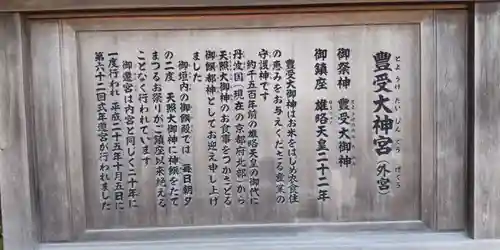 豊受大神宮（外宮）
とようけだいじんぐう げくう
御祭神　豊受大御神
御鎮座　雄略天皇二十二年
豊受大御神はお米をはじめ衣食住
の恵みをお与えくださる産業の
守護神です
約千五百年前の雄略天皇の御代に
丹波国（現在の京都府北部）から
天照大御神のお食事をつかさどる
御饌都神としてお迎え申し上げ
ました
御垣内の御饌殿では　毎日朝夕
の二度　天照大御神に神饌をたて
まつるお祭りがご鎮座以来絶える
ことなく行われています
御遷宮は内宮と同じく二十年に
一度行われ　平成二十五年十月五日に
第六十二回式年遷宮が行われました